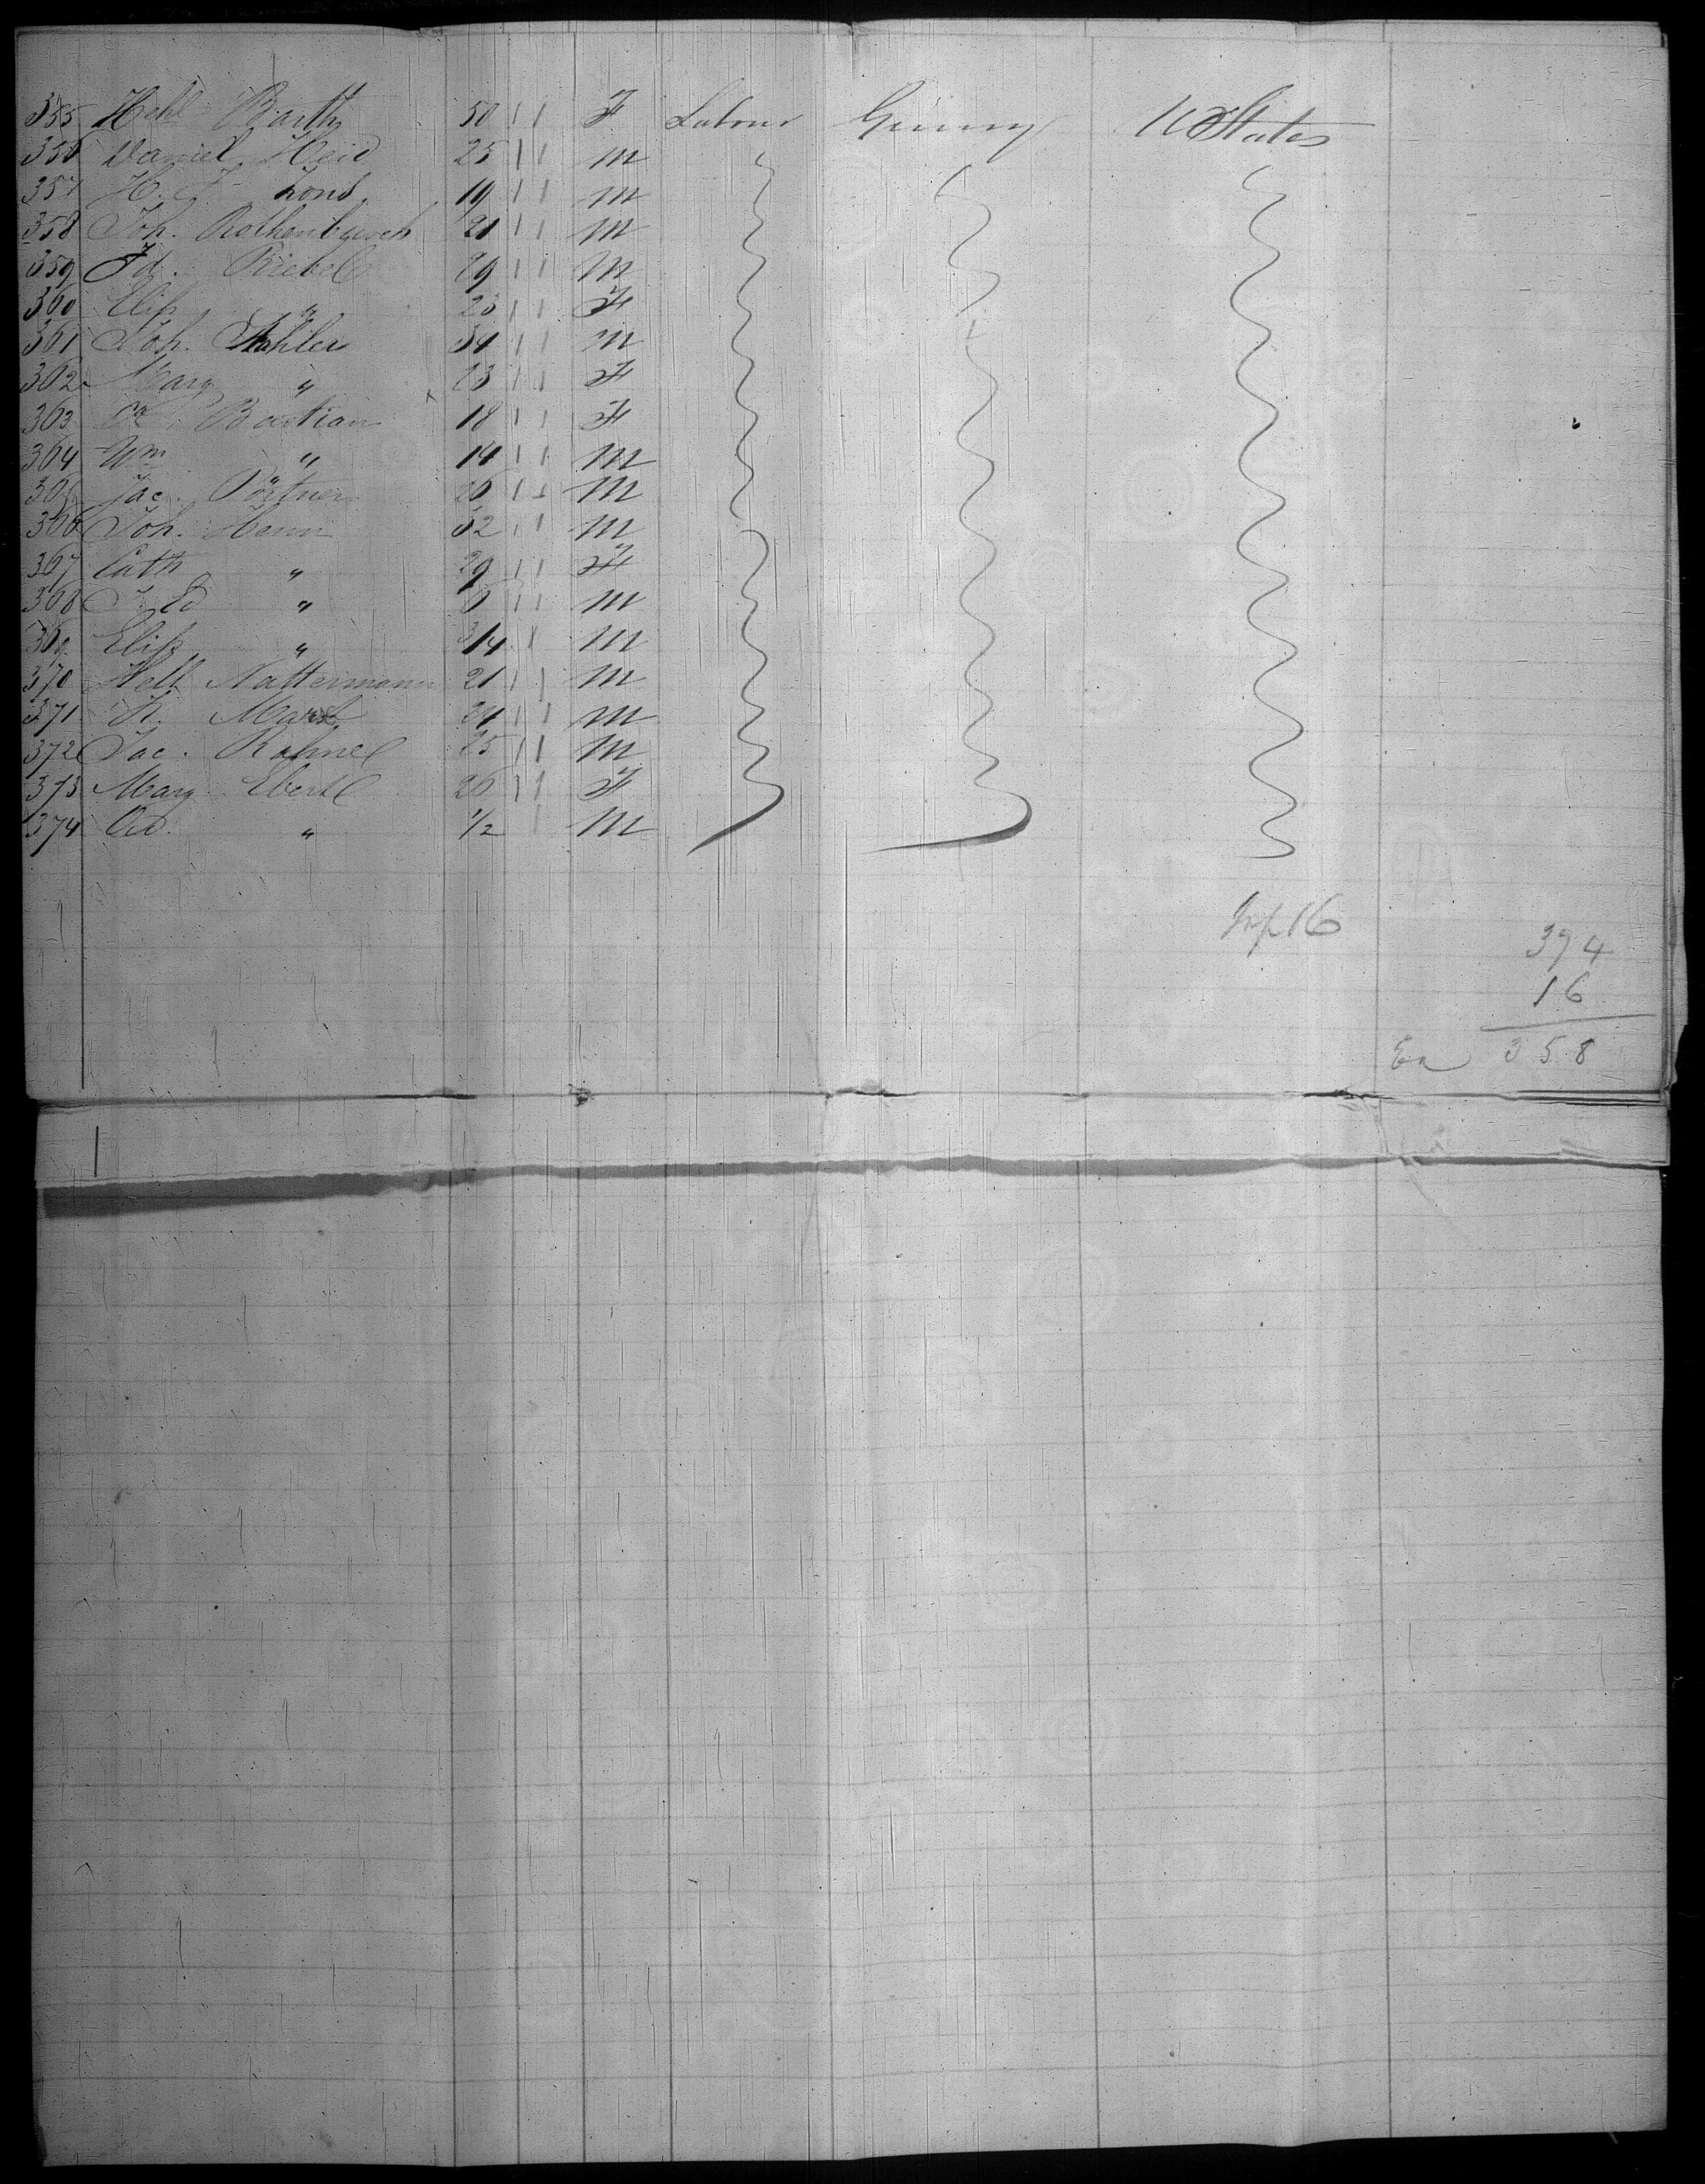 355 Hehl Barth 50 F Labour Germy U States
356 Daniel Heid 25 m
357 H. F. 19 m
358 Joh. Rothenbusch 21 m
359 Fd. Riebel 29 m
360 Elis " 23 F
361 Joh. Kohler 34 m
362 Marg " 23 F
363 Bastian 18 F
364 Wm " 14 m
365 Jac. Pörtner 26 m
366 Joh. Henn 32 m
367 Cath " 29 F
368 Ed " 6 m
369 Elis " 3/4 m
370 Nattermann 21 m
371 K. 24 m
372 Jac. Rahmel 25 m
373 Marg Ebert 26 F
374 " 1/2 m
Inf 16
374
16
358